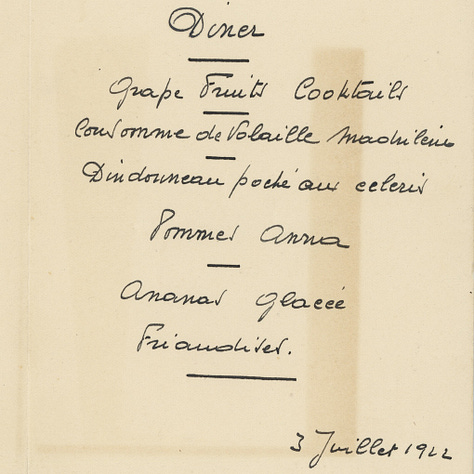 Diner
Grape Fruits Cocktails
Consomme de Volaille Madrilène
Dindonneau poché aux celeris
Pommes Anna
Ananas Glacée
Friandises.
3 Juillet 1922